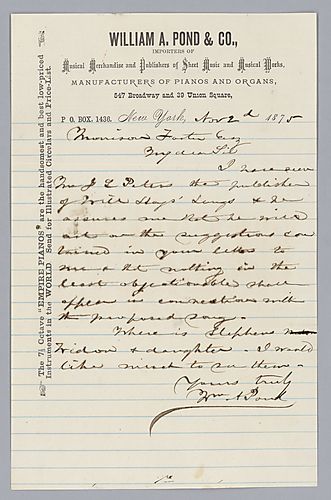 WILLIAM A. POND & CO.,
IMPORTERS OF
Musical Merchandise and Publishers of Sheet Music and Musical Works,
MANUFACTURERS OF PIANOS AND ORGANS,
547 Broadway and 39 Union Square,
P. O. BOX. 1436. New York, Nov 2d 1875
Morrison Foster Esq
My dear Sir
I have seen
Mr J L Peters the publisher
of Will Hays' Songs & he
assures me that he will
act on the suggestions con
tained in your letter to
me & that nothing in the
least objectionable shall
appear in connection with
the new proposed song.
Where is Stephens
Widow & daughter. I would
like much to see them.
Yours truly
Wm A Pond
The 7⅓ Octave "EMPIRE PIANOS" are the handsomest and best low-priced
Instruments in the WORLD. Send for Illustrated Circulars and Price-List.